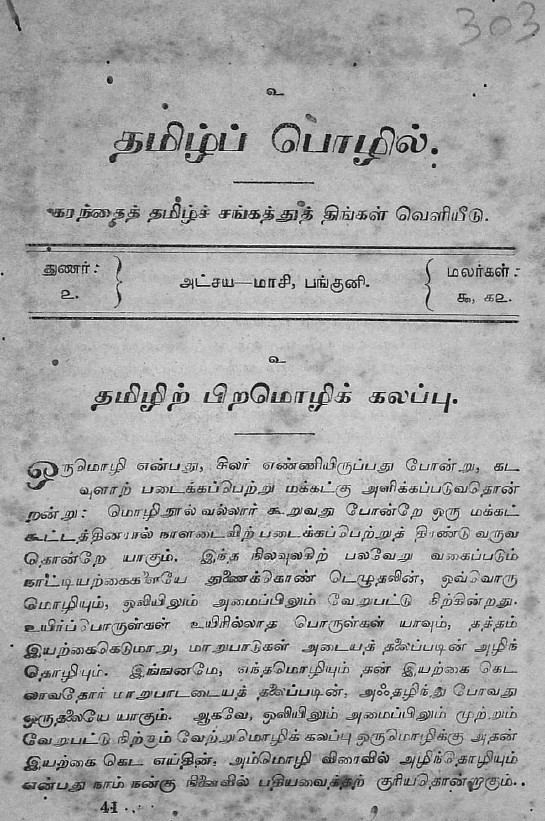 303
உ
தமிழ்ப் பொழில்.
கரந்தைத் தமிழ்ச் சங்கத்துத் திங்கள் வெளியீடு.
துணர்:
உ.
அட்சய—மாசி, பங்குனி.
மலர்கள்:
கக, கஉ.
உ
தமிழிற் பிறமொழிக் கலப்பு.
ஒருமொழி என்பது, சிலர் எண்ணியிருப்பது போன்று, கட
வுளாற் படைக்கப்பெற்று மக்கட்கு அளிக்கப்படுவதொன்
றன்று: மொழிநூல் வல்லார் கூறுவது போன்றே ஒரு மக்கட்
கூட்டத்தினரால் நாளடைவிற் படைக்கப்பெற்றுத் திரண்டு வருவ
தொன்றே யாகும். இந்த நிலவுலகிற் பலவேறு வகைப்படும்
நாட்டியற்கைகளையே துணைக்கொண் டெழுதலின், ஒவ்வொரு
மொழியும், ஒலியிலும் அமைப்பிலும் வேறுபட்டு நிற்கின்றது.
உயிர்ப்பொருள்கள் உயிரில்லாத பொருள்கள் யாவும், தத்தம்
இயற்கைகெடுமாறு, மாறுபாடுகள் அடையத் தலைப்படின் அழிந்
தொழியும். இங்ஙனமே, எந்தமொழியும் தன் இயற்கை கெட
லாவதோர் மாறுபாடடையத் தலைப்படின், அஃதழிந்து போவது
ஒருதலையே யாகும். ஆகவே, ஒலியிலும் அமைப்பிலும் முற்றும்
வேறுபட்டு நிற்கும் வேற்றுமொழிக் கலப்பு ஒருமொழிக்கு அதன்
இயற்கை கெட எய்தின், அம்மொழி விரைவில் அழிந்தொழியும்
என்பது நாம் நன்கு நினைவில் பதியவைத்தற் குரியதொன்றாகும்.
41